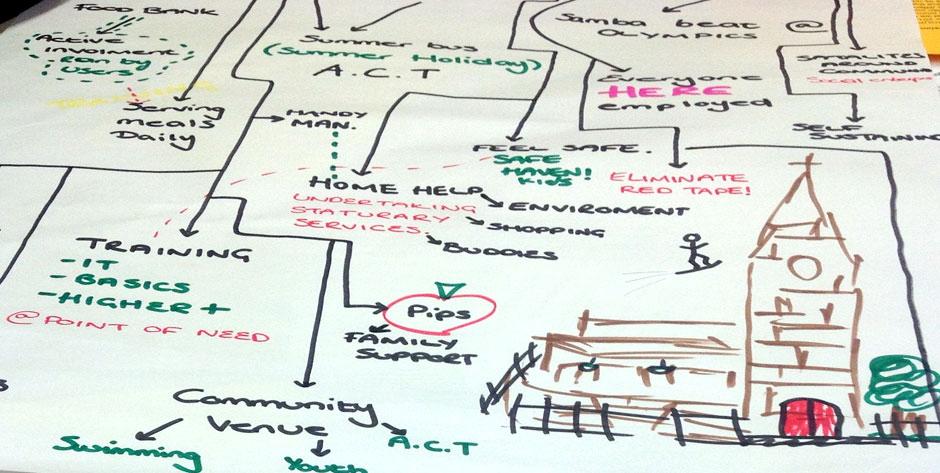 FOOD BANK
ACTIVE
INVOLMENT
RAN BY
USERS
Serving
meals
Daily
Summer bus
(Summer Holiday)
A.C.T
Samba beat
OLYMPICS
@
Everyone
HERE
employed
SATALLITES
AROUND
COMMUNITY
SELF
SUSTAINING
HANDY
MAN.
FEEL SAFE.
SAFE
HAVEN!
KIDS
ELIMINATE
RED TAPE!
HOME HELP
UNDERTAKING
STATURARY
SERVICES.
ENVIROMENT
SHOPPING
BUDDIES
TRAINING
-IT
-BASICS
-HIGHER +
@ POINT OF NEED
Pips
FAMILY
SUPPORT
Community
Venue
A.C.T
Swimming
Youth